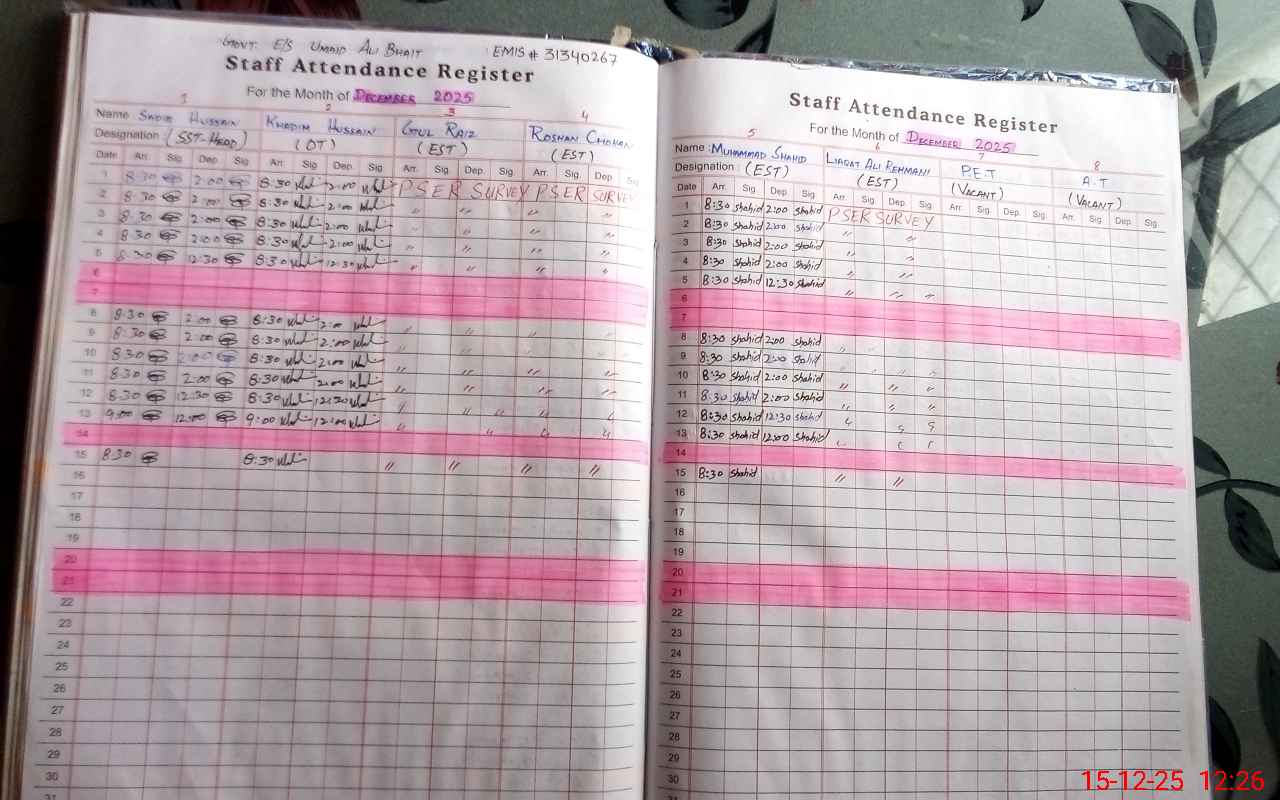 GOVT: E/S UMAID ALI BHAIT EMIS # 31340267
Staff Attendance Register
For the Month of DECEMBER 2025
1 2 3 4
Name SADIQ HUSSAIN KHADIM HUSSAIN GUL RAIZ ROSHAN CHOHAN
Designation (SST-HEAD) (DT) (EST) (EST)
Date Arr. Sig Dep. Sig Arr. Sig. Dep. Sig Arr. Sig. Dep. Sig. Arr. Sig. Dep Sig
1 8:30 2:00 8:30 2:00 PSER SURVEY PSER SURVEY
2 8:30 2:00 8:30 2:00 〃 〃 〃 〃
3 8:30 2:00 8:30 2:00 〃 〃 〃 〃
4 8:30 2:00 8:30 2:00 〃 〃 〃 〃
5 8:30 12:30 8:30 12:30 〃 〃 〃 〃
6
7
8 8:30 2:00 8:30 2:00 〃 〃 〃 〃
9 8:30 2:00 8:30 2:00 〃 〃 〃 〃
10 8:30 2:00 8:30 2:00 〃 〃 〃 〃
11 8:30 2:00 8:30 2:00 〃 〃 〃 〃
12 8:30 12:30 8:30 12:30 〃 〃 〃 〃 〃
13 9:00 12:00 9:00 12:00 〃 〃 〃 〃
14
15 8:30 8:30 〃 〃 〃 〃
16
17
18
19
20
21
22
23
24
25
26
27
28
29
30
31
Staff Attendance Register
For the Month of DECEMBER 2025
5 6 7 8
Name : MUHAMMAD SHAHID LIAQAT ALI REHMANI P.E.T A.T
Designation : (EST) (EST) (VACANT) (VACANT)
Date Arr. Sig. Dep. Sig. Arr. Sig. Dep. Sig. Arr. Sig. Dep. Sig. Arr. Sig. Dep. Sig.
1 8:30 shahid 2:00 shahid PSER SURVEY
2 8:30 shahid 2:00 shahid 〃 〃
3 8:30 shahid 2:00 shahid 〃 〃
4 8:30 shahid 2:00 shahid 〃 〃
5 8:30 shahid 12:30 shahid 〃 〃 〃
6
7
8 8:30 shahid 2:00 shahid
9 8:30 shahid 2:00 shahid 〃 〃 〃
10 8:30 shahid 2:00 shahid 〃 〃 〃
11 8:30 shahid 2:00 shahid 〃 〃 〃
12 8:30 shahid 12:30 shahid 〃 〃 〃
13 8:30 shahid 12:00 shahid 〃 〃 〃
14
15 8:30 shahid 〃 〃
16
17
18
19
20
21
22
23
24
25
26
27
28
29
30
15-12-25 12:26